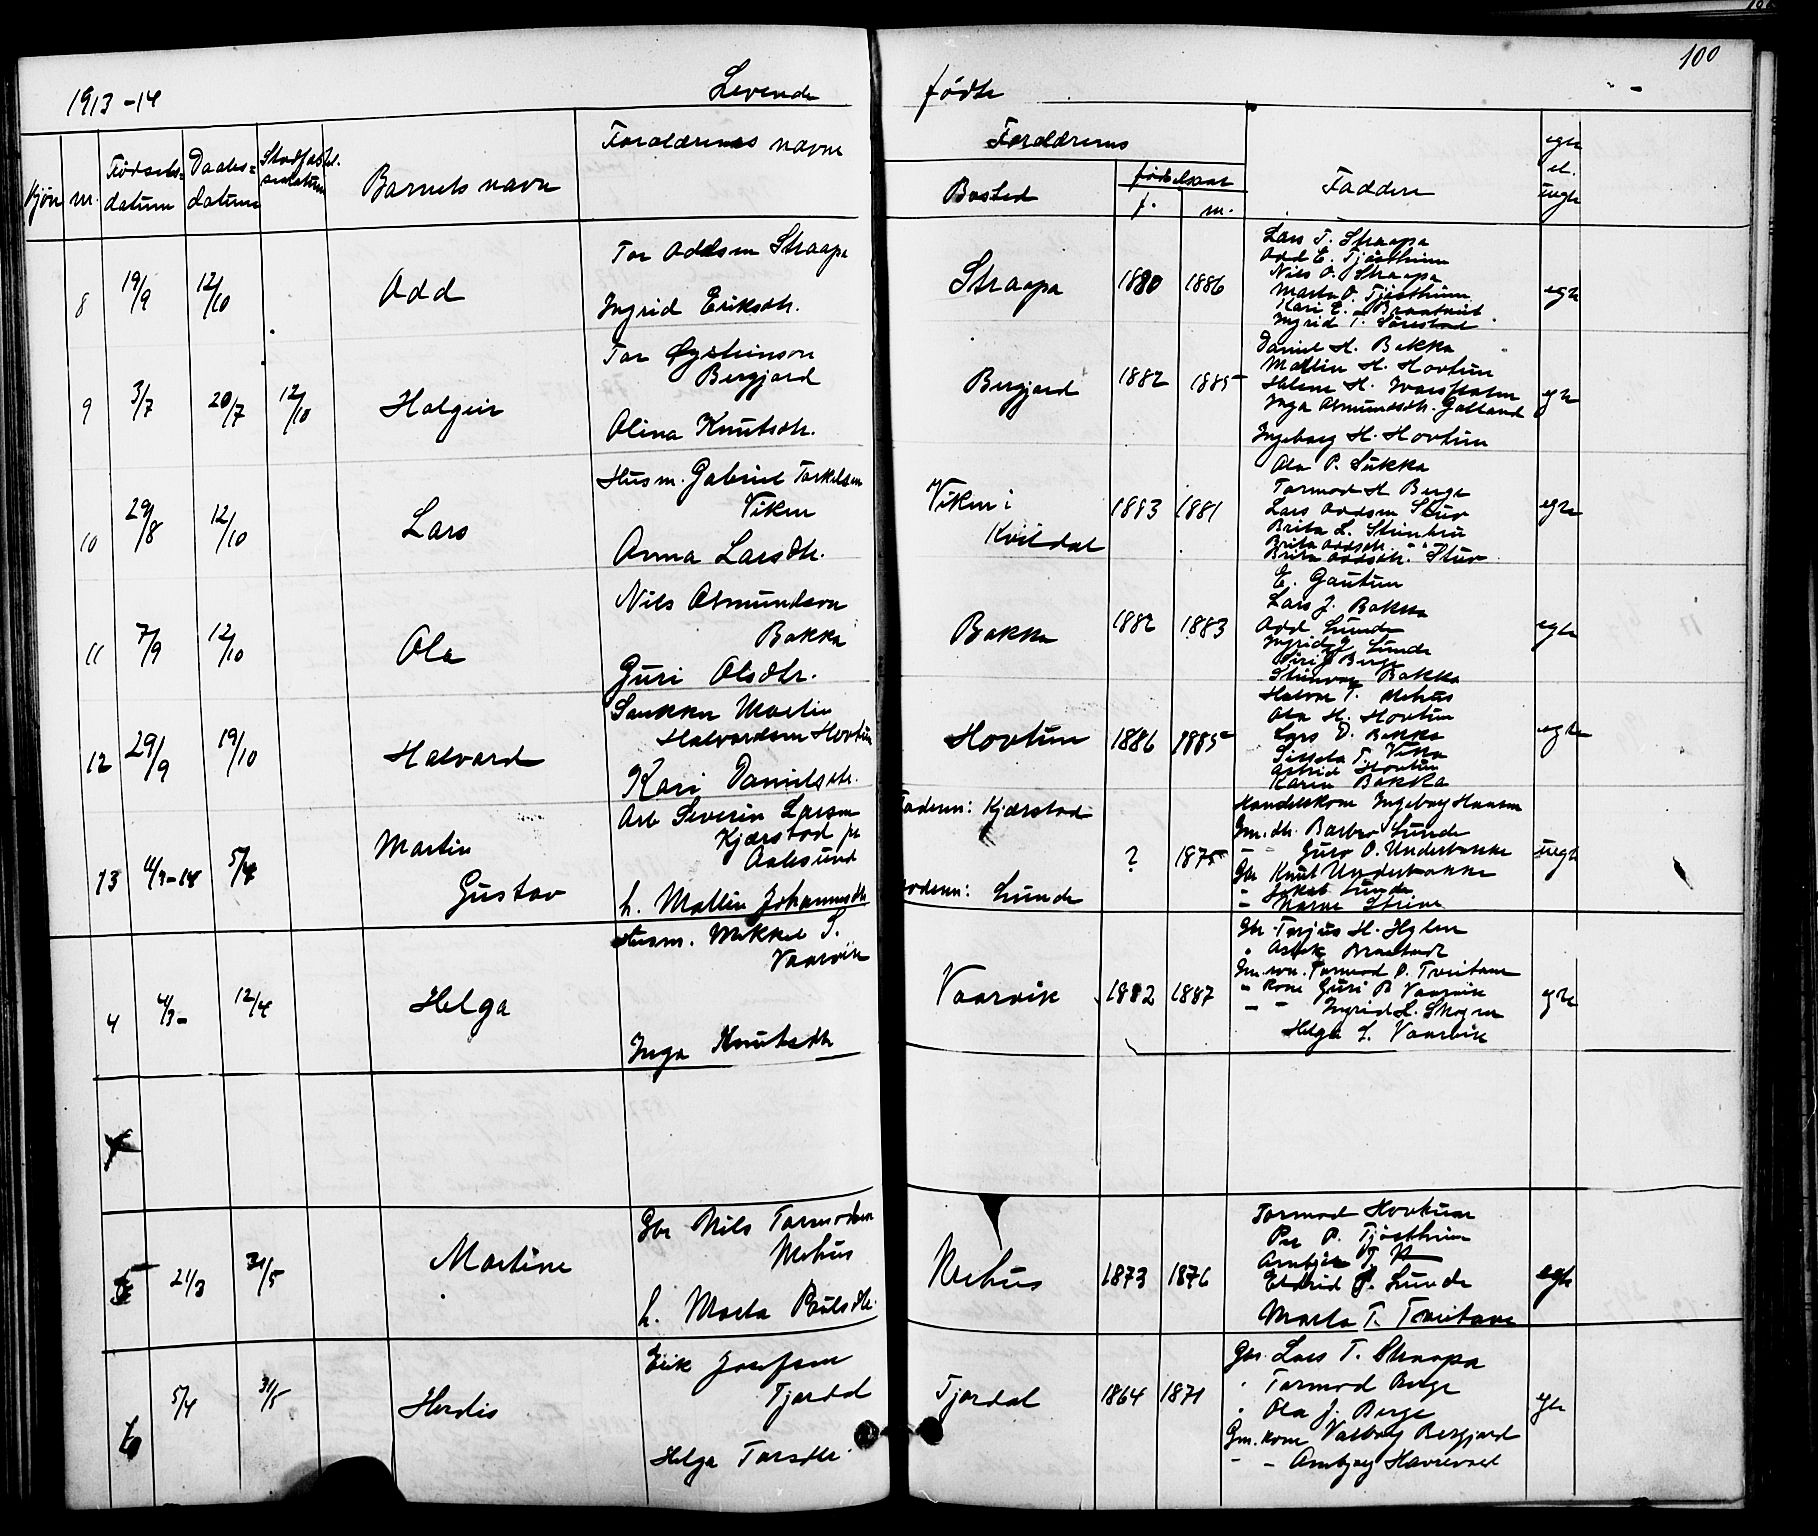 100
1913-14 Levende fødte
Kjøn m. Fødsels- datum Daabs- datum Stadfæst. sesdatum Barnets navn Forældrenes navne
Forældrenes Bosted fødselsaar f. m. Faddere egte el. uegte
8 19/9 12/10 Odd
Tor Oddsen Straapa
Ingrid Eriksdtr.
Straapa 1880 1886
Lars T. Straapa
Odd E. Tjøstheim
Nils O. Straapa
Marta O. Tjøstheim
Kari E.
Ingrid T.
egte
9 3/7 20/7 12/10 Halgeir
Tor Øysteinson
Bergjord
Olina Knutsdtr.
Bergjord 1882 1885
Daniel H. Bakka
Mallin H. Hovtun
Helene H.
Inga Asmundsdtr.
Ingeborg H. Hovtun
egte
10 29/8 12/10 Lars
Husm. Gabriel Torkelsen
Viken
Anna Larsdtr.
Viken i
Kvildal
1883 1881
Ola P. Sukka
Tormod H Berge
Lars Oddsen Stuv
Brita L.
Brita Oddsdtr.
Brita Oddsdtr. Stuv
egte
11 7/9 12/10 Ola
Nils Asmundson
Bakka
Guri Olsdtr.
Bakka 1882 1883
E. Gautun
Lars J. Bakka
Odd Lunde
Ingrid J. Lunde
Siri J Berge
Steinvor Bakka
egte
12 29/9 19/10 Halvard
Martin
Halvardsen Hovtun
Kari Danielsdtr.
Hovtun 1886 1885
Halvor T. Mehus
Ola H. Hovtun
Lars D. Bakka
Sissela T. Vika
Astrid Hovtun
Karen Bakka
egte
13 4/3-14 5/4 Martin
Gustav
Arb Severin Larsen
Kjærstad på
Aalesund
h. Mallin Johannesdtr
Faderen: Kjærstad
Moderen: Lunde
? 1875
Handelskone Ingeborg Hansen
Gm. dtr. Barbro Lunde
- Guro O. Underbakke
Gbr Knut Underbakke
- Jakob Lunde
uegte
4 4/3- 12/4 Helga
Husm. Mikkel S.
Vaarvik
Inga Knutsdtr
Vaarvik 1882 1887
Gbr. Torjus H. Hylen
Gm. søn. Tormod O. Tveitane
" kone Guri B Vaarvik
- - Ingrid L.
Helga L. Vaarvik
egte
5 21/3 31/5 Martine
Gbr Nils Tormodsen
Mehus
h. Marta Paulsdtr.
Mehus 1873 1876
Tormod Hovtun
Per P. Tjøstheim
Eldrid J. Lunde
Marta T. Tveitane
egte
6 5/4 31/5 Herdis
Eirik Josefsen
Tjordal
Helga Torsdtr.
Tjordal 1864 1871
Gbr. Lars T. Straapa
" Tormod Berge
" Ola J. Berge
Gm. kone Valborg Bergjord
- - Anbjørg Havrevold
egte